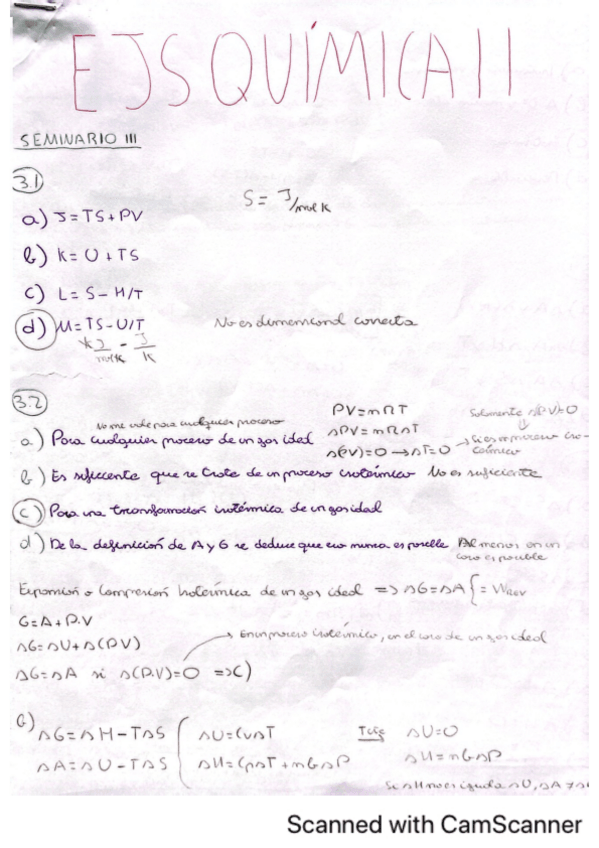 EJS QUÍMICA II
SEMINARIO III
3.1
S = J/mol K
a) J = TS + PV
b) K = U + TS
c) L = S - H/T
d) M = TS - U/T No es dimensional correcta
K J/mol K - J/K
3.2
No me vale para cualquier proceso
a) Para cualquier proceso de un gas ideal
PV = nRT
ΔPV = nRΔT
Δ(PV) = 0 → ΔT = 0
Solamente Δ(PV) = 0
Si es un proceso iso-
térmico
b) Es suficiente que se trate de un proceso isotérmico No es suficiente
c) Para una transformación isotérmica de un gas ideal
d) De la definición de A y G se deduce que eso nunca es posible Al menos en un
caso es posible
Expansión o Compresión Isotérmica de un gas ideal => ΔG = ΔA { = Wrev
G = A + P.V
ΔG = ΔU + Δ(PV)
→ En un proceso isotérmico, en el caso de un gas ideal
ΔG = ΔA si Δ(P.V) = 0 => c)
b)
ΔG = ΔH - TΔS ΔU = CvΔT T cte ΔU = 0
ΔA = ΔU - TΔS ΔH = CpΔT + nbΔP ΔH = nbΔP
Si ΔH no es igual a ΔU, ΔA ≠
Scanned with CamScanner